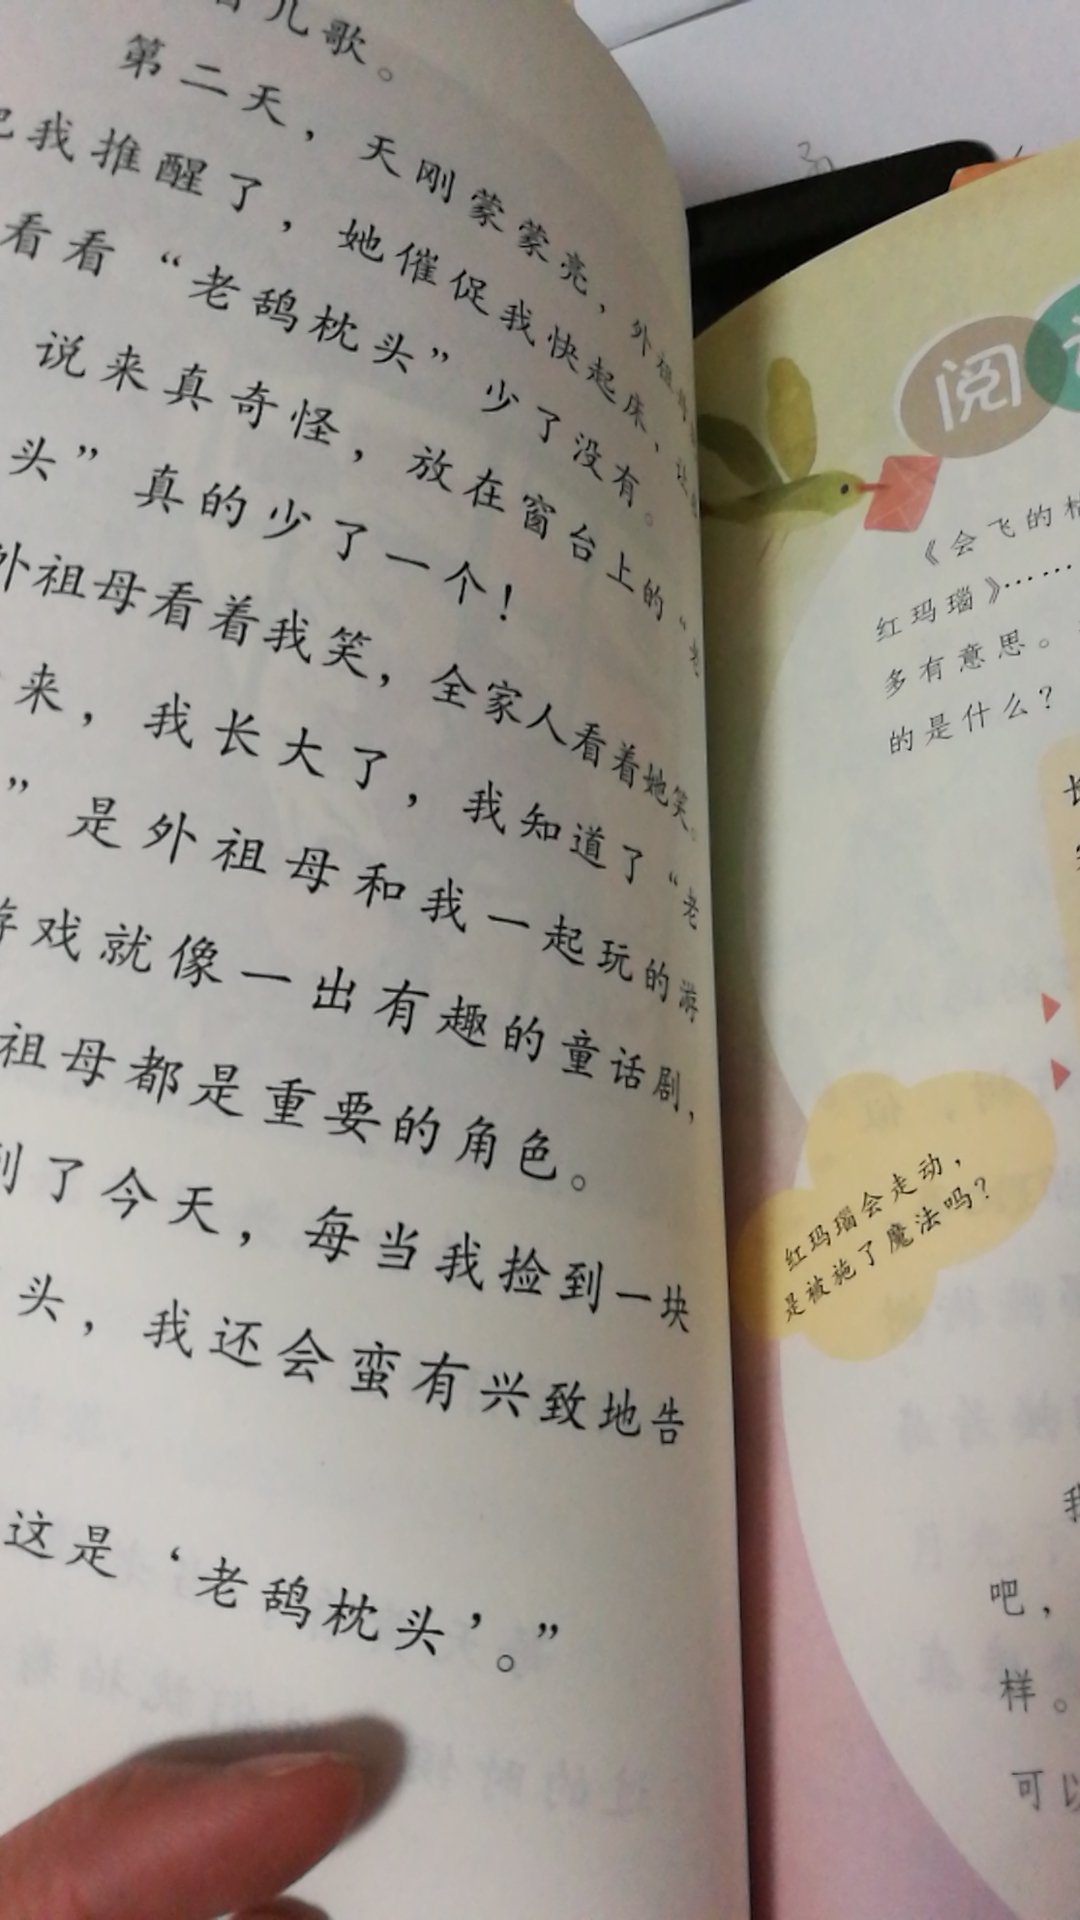 儿歌。
第二天，天刚蒙蒙亮，外祖母
把我推醒了，她催促我快起床，
看看“老鸹枕头”少了没有。
说来真奇怪，放在窗台上的“老
头”真的少了一个！
外祖母看着我笑，全家人看着她笑。
来，我长大了，我知道了“老
”是外祖母和我一起玩的游
游戏就像一出有趣的童话剧，
祖母都是重要的角色。
到了今天，每当我捡到一块
头，我还会蛮有兴致地告
这是‘老鸹枕头’。”
阅
《会飞的
红玛瑙》……
多有意思。
的是什么？
红玛瑙会走动，
是被施了魔法吗？
我
吧，
样。
可以